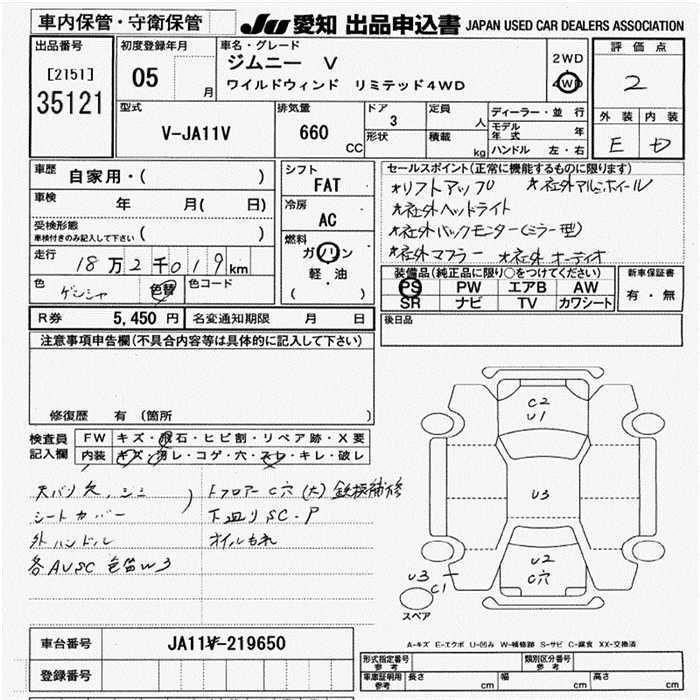 車内保管・守衛保管
JU 愛知 出品申込書 JAPAN USED CAR DEALERS ASSOCIATION
出品番号
[2151]
35121
初度登録年月
05 月
車名・グレード
ジムニー V
ワイルドウィンド リミテッド4WD
2WD
4WD
評価点
2
外装 内装
E D
型式
V-JA11V
排気量
660 CC
ドア
3
形状
定員
人
積載
kg
ディーラー・並行
モデル年式 年
ハンドル 左・右
車歴 自家用・( )
車検 年 月( 日)
受検形態
車検付きのみ記入して下さい ( )
走行 18万2千019km
色 ゲンシャ 色替 色コード
シフト
FAT
冷房
AC
燃料
ガソリン
軽・油
( )
セールスポイント(正常に機能するものに限ります)
*リフトアップ *社外アルミホイール
*社外ヘッドライト
*社外バックモニター(ミラー型)
*社外マフラー *社外オーディオ
装備品(純正品に限り○をつけてください)
PS PW エアB AW
SR ナビ TV カワシート
新車保証書
有・無
R券 5,450円 名変通知期限 月 日
後日品
注意事項申告欄(不具合内容等は具体的に記入して下さい)
修復歴 有 (箇所 )
検査員記入欄
FW キズ・飛石・ヒビ割・リペア跡・X要
内装 キズ・汚レ・コゲ・穴・スレ・キレ・破レ
シートカバー
外ハンドル
各AUSC 色笛W3
トフロアーC穴(大)鉄板補修
下廻りSC・P
オイルもれ
C2
U1
U3
U2
C穴
U3
C1
スペア
A-キズ E-エクボ U-凹み W-補修跡 S-サビ C-腐食 XX-交換済
車台番号 JA11V-219650
登録番号
形式指定番号 参考
類別区分番号 参考
車庫証明用 参考 長さ cm 幅 cm 高さ cm